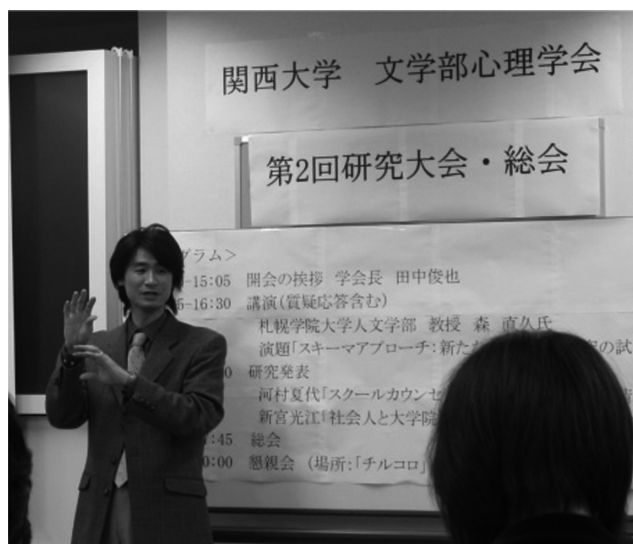 関西大学 文学部心理学会
第2回研究大会・総会
グラム>
-15:05 開会の挨拶 学会長 田中俊也
-16:30 講演(質疑応答含む)
札幌学院大学人文学部 教授 森 直久氏
演題「スキーマアプローチ:新た の試
0 研究発表
河村夏代「スクールカウンセ
新宮光江「社会人と大学院
:45 総会
0:00 懇親会 (場所:「チルコロ」